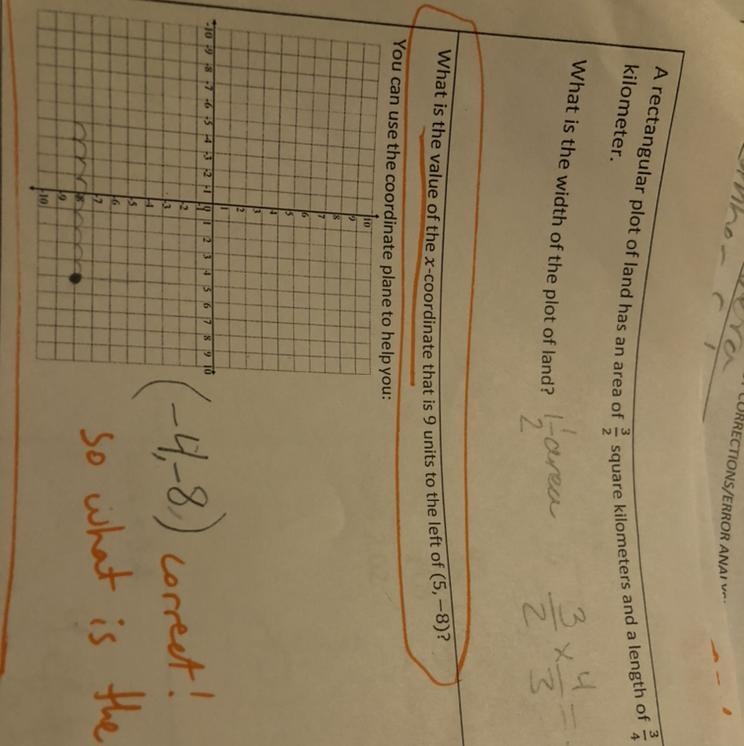 CORRECTIONS/ERROR
A rectangular plot of land has an area of 3/2 square kilometers and a length of 3/4
kilometer.
What is the width of the plot of land? 1 1/2 area 3/2 x 4/3 =
What is the value of the x-coordinate that is 9 units to the left of (5,−8)?
You can use the coordinate plane to help you:
10
9
8
7
6
5
4
3
2
1
-10 -9 -8 -7 -6 -5 -4 -3 -2 -1 0 1 2 3 4 5 6 7 8 9 10
-1
-2
-3
-4
-5
-6
-7
-8
-9
-10
(-4,-8,) correct!
so what is the